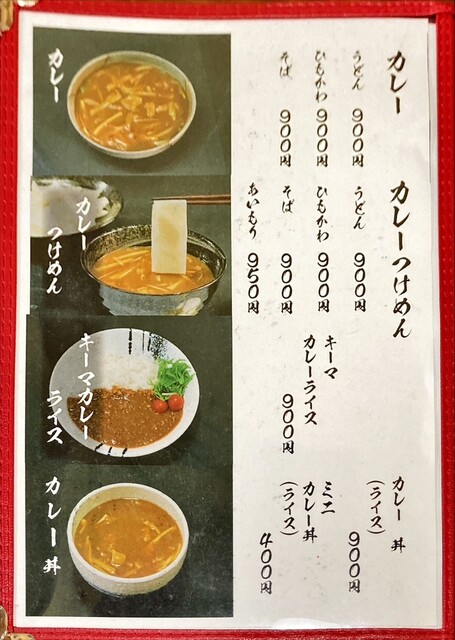 カレー
うどん 900円
ひもかわ 900円
そば 900円
カレーつけめん
うどん 900円
ひもかわ 900円
そば 900円
あいもり 950円
キーマ
カレーライス
900円
カレー丼
(ライス)
900円
ミニ
カレー丼
(ライス)
400円
カレー
カレー
つけめん
キーマカレー
ライス
カレー丼